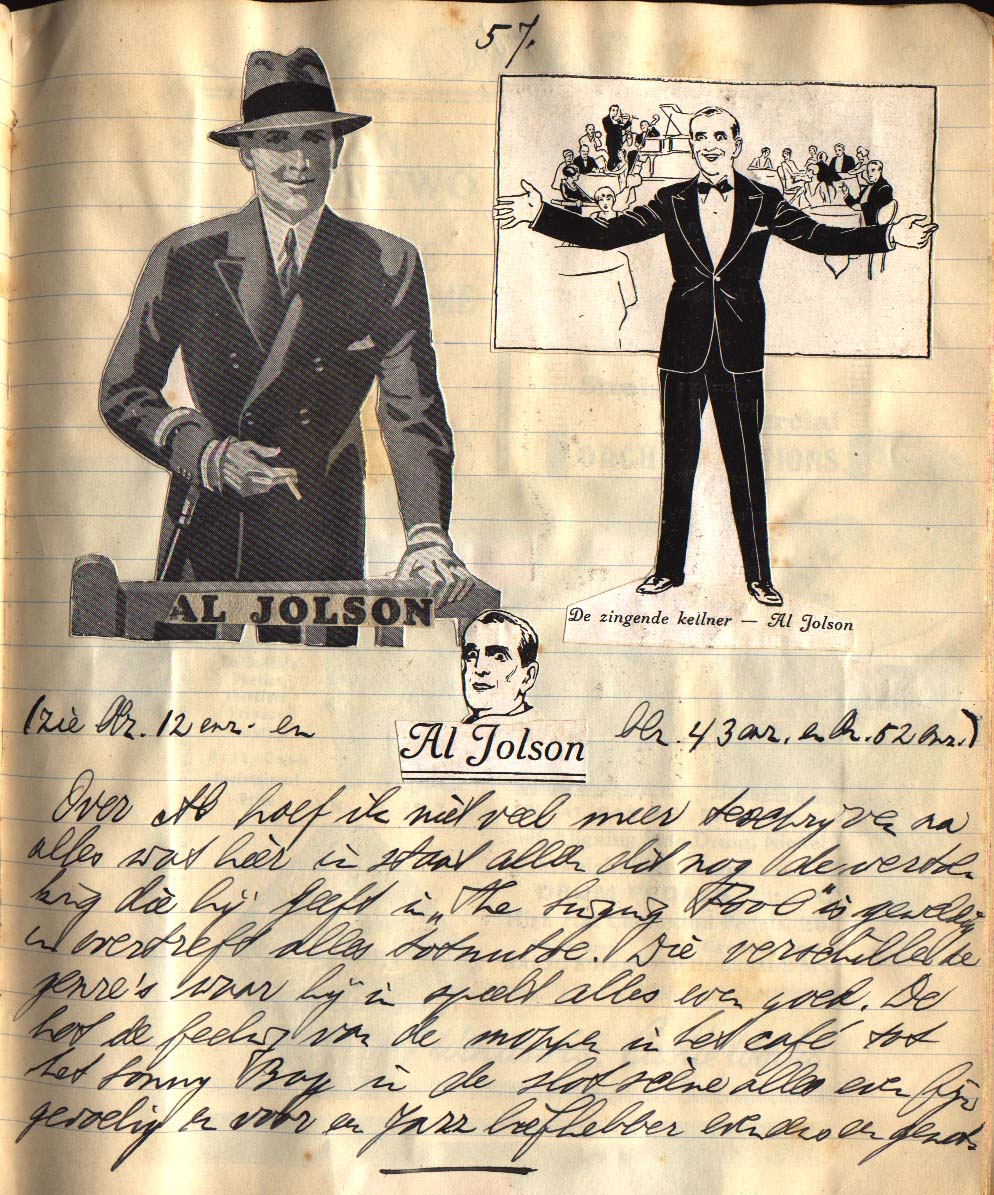 57.
AL JOLSON
De zingende kellner — Al Jolson
(zie blz. 12 enz. en blz. 43 enz. en blz. 52 enz.)
Al Jolson
Over Al hoef ik niet veel meer te schrijven na
alles wat hier in staat alleen dit nog de verto
ning die hij geeft in „The Singing Fool" is geweldig
en overtreft alles totnutoe. Die verschillende
genre's waar hij in speelt alles even goed. De
van de moppen in het café tot
het Sonny Boy in de slot scène alles even fijn
gevoelig en voor een Jazz liefhebber eveneens een genot.